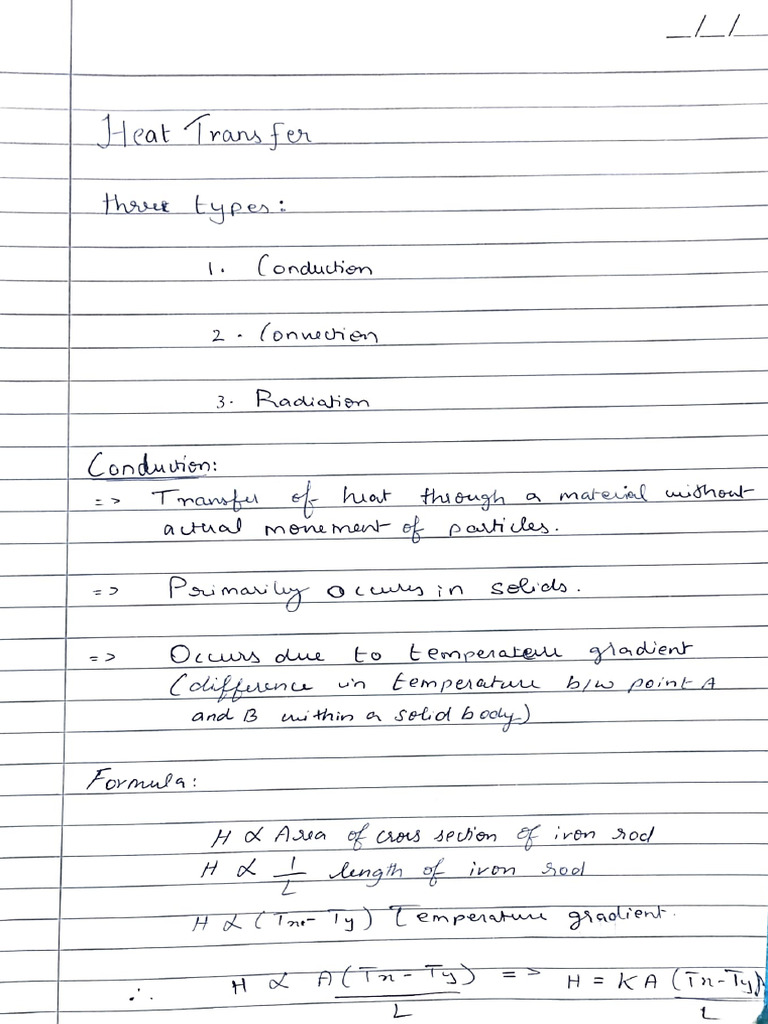 _/_/
Heat Transfer
three types:
1. Conduction
2. Connection
3. Radiation
Conduction:
=> Transfer of heat through a material without
actual movement of particles.
=> Primarily occurs in solids.
=> Occurs due to temperature gradient
(difference in temperature b/w point A
and B within a solid body)
Formula:
H ∝ Area of cross section of iron rod
H ∝ 1/L length of iron rod
H ∝ (Tx - Ty) Temperature gradient.
∴ H ∝ A(Tx - Ty)/L => H = KA (Tx - Ty)/L